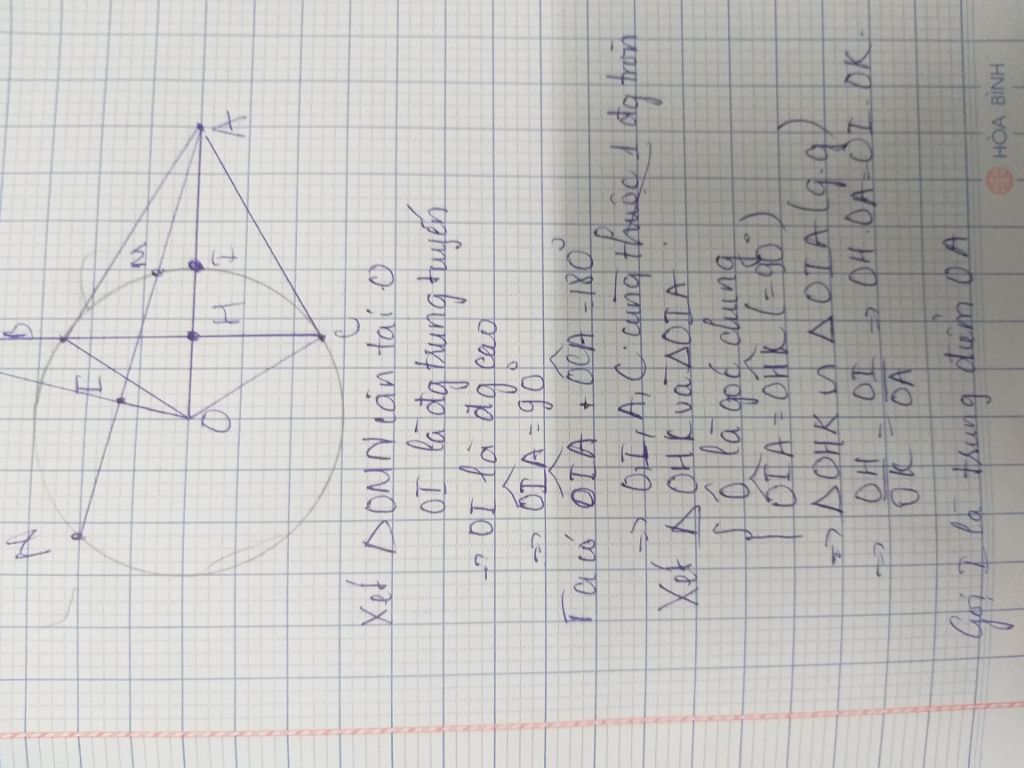 N
B
M
I
H
T
A
O
C
Xét ΔOMN cân tại O
OI là đg trung tuyến
=> OI là đg cao
=> OIA = 90°
Ta có OIA + OCA = 180°
=> O,I,A,C cùng thuộc 1 đg tròn
Xét ΔOHK và ΔOIA
{ Ô là góc chung
OIA = OHK (= 90°)
=> ΔOHK ∽ ΔOIA (g.g)
=> OH/OK = OI/OA => OH.OA = OI.OK.
Gọi T là trung điểm OA
HÒA BÌNH